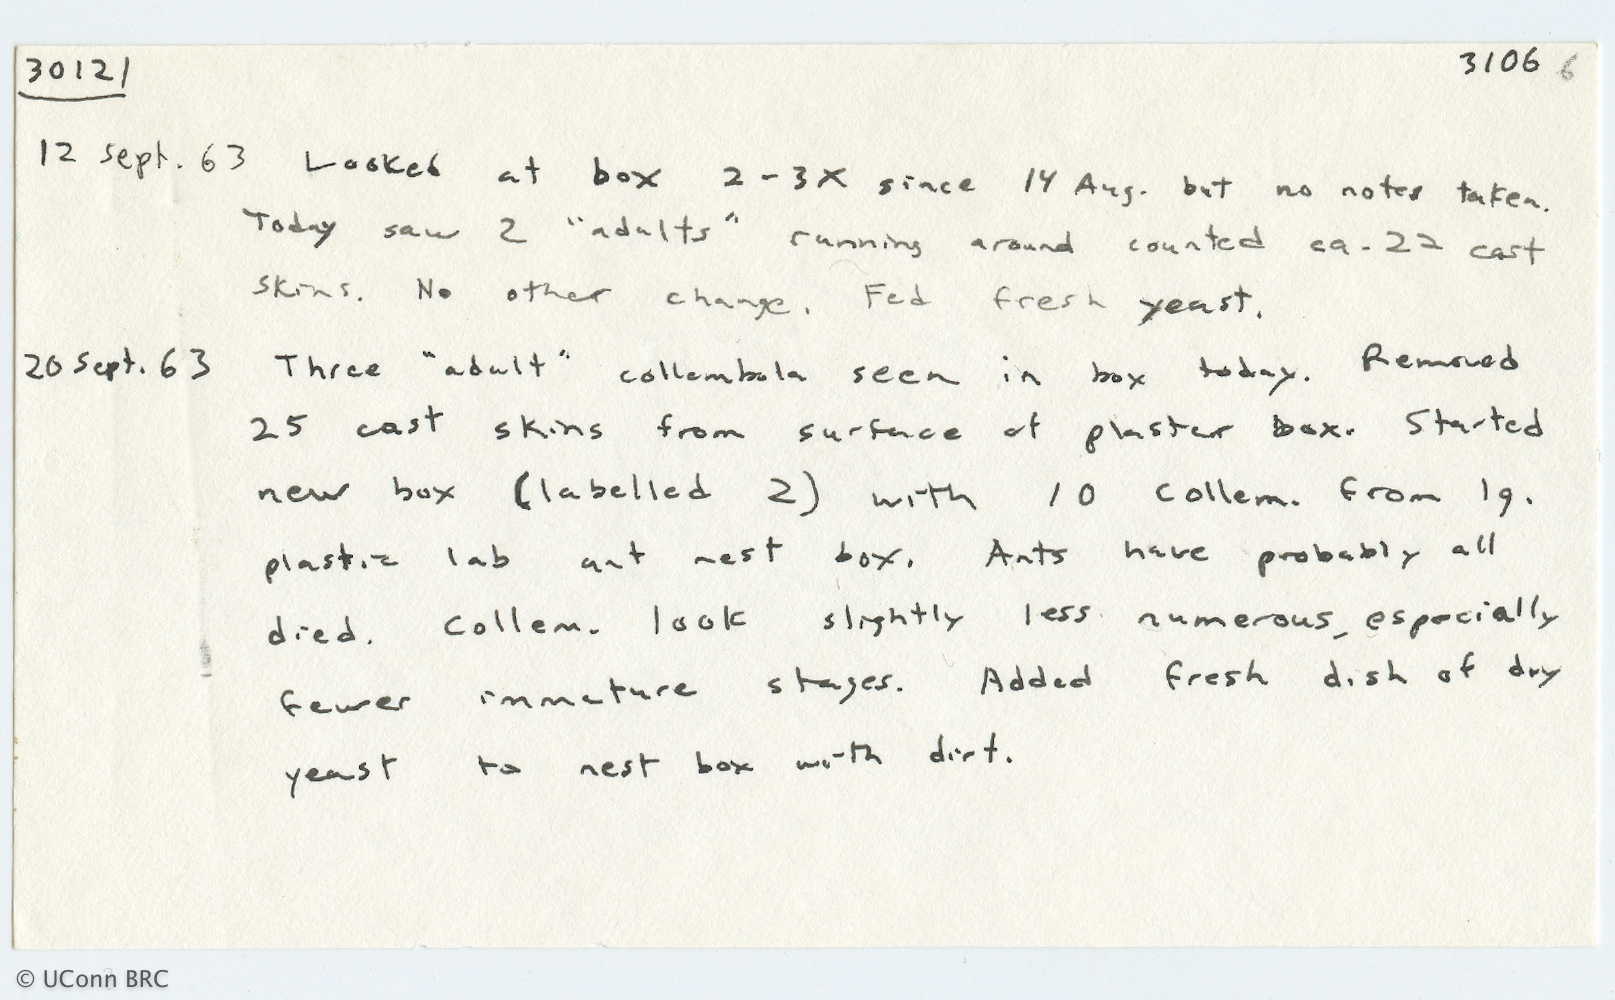 30121 3106 6
12 Sept. 63 Looked at box 2-3X since 14 Aug. but no notes taken.
Today saw 2 "adults" running around counted ca. 22 cast
skins. No other change. Fed fresh yeast.
20 Sept. 63 Three "adult" collembola seen in box today. Removed
25 cast skins from surface of plaster box. Started
new box (labelled 2) with 10 collem. from lg.
plastic lab ant nest box. Ants have probably all
died. Collem. look slightly less numerous, especially
fewer immature stages. Added fresh dish of dry
yeast to nest box with dirt.
© UConn BRC